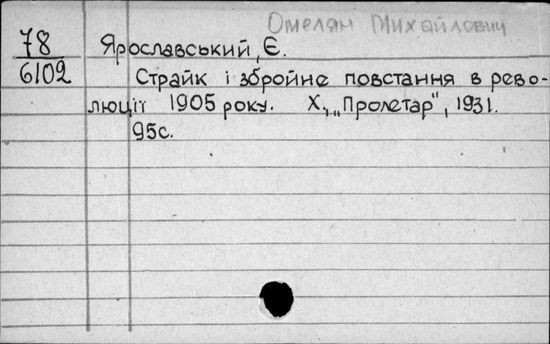 Омелян Михайлович
78
6102
Ярославський, Є.
Страйк і збройне повстання в рево-
люції 1905 року. Х., „Пролетар", 1931.
95с.